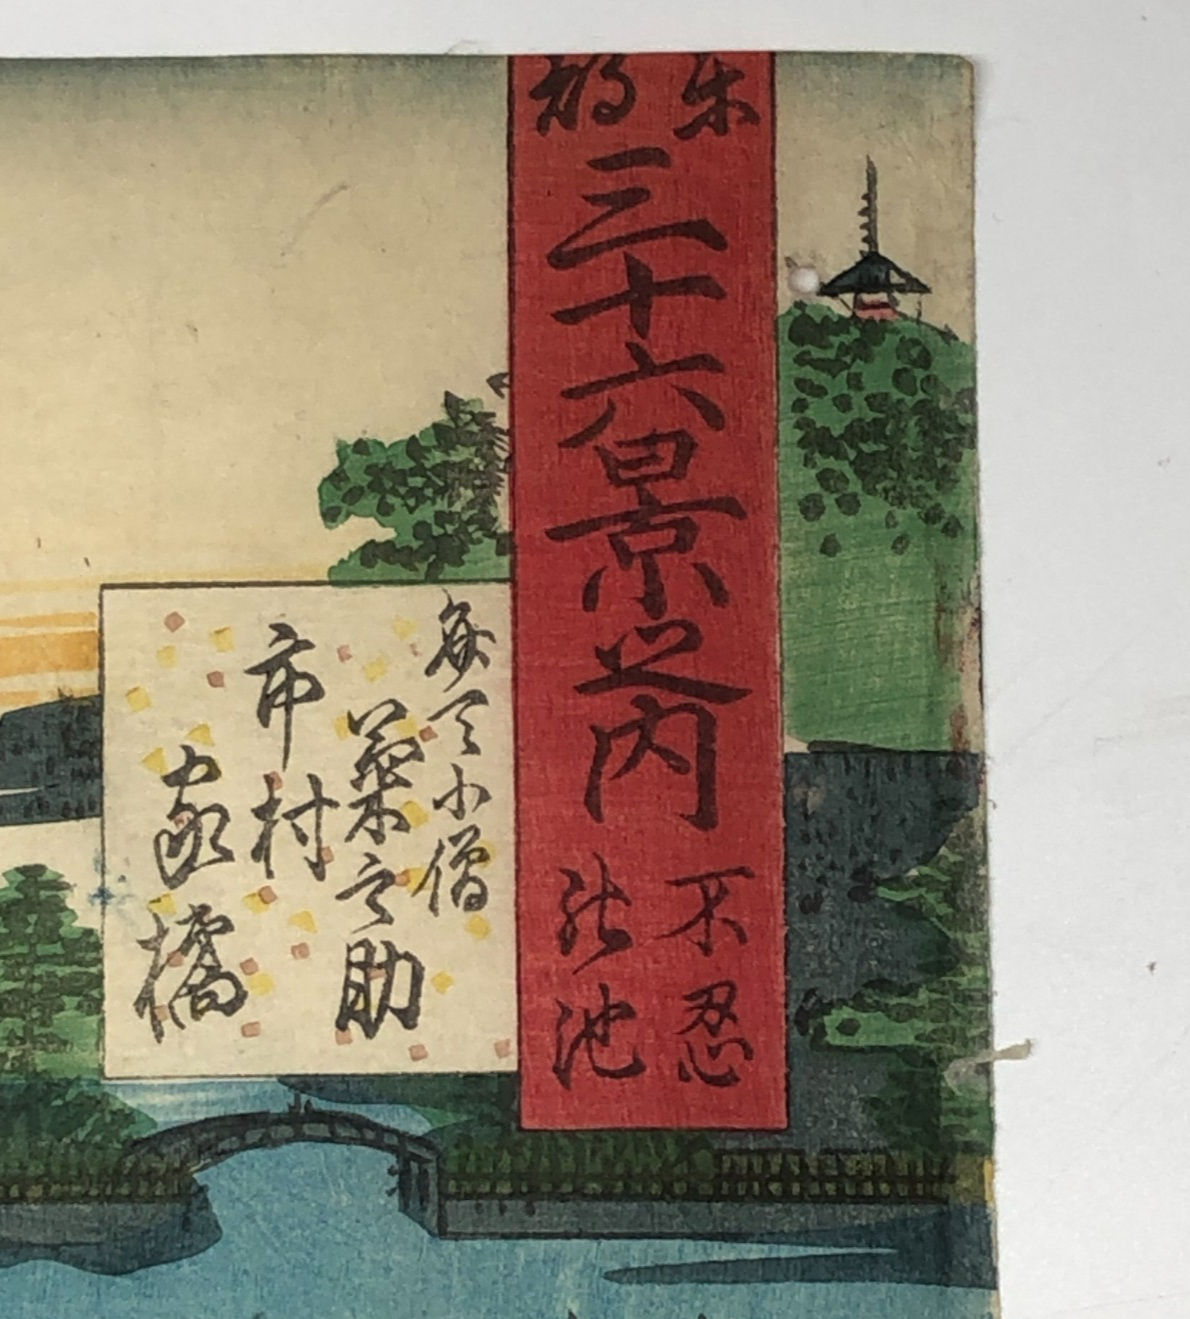 三十六景之内
不忍
能池
弁天小僧
菊之助
市村
家橘